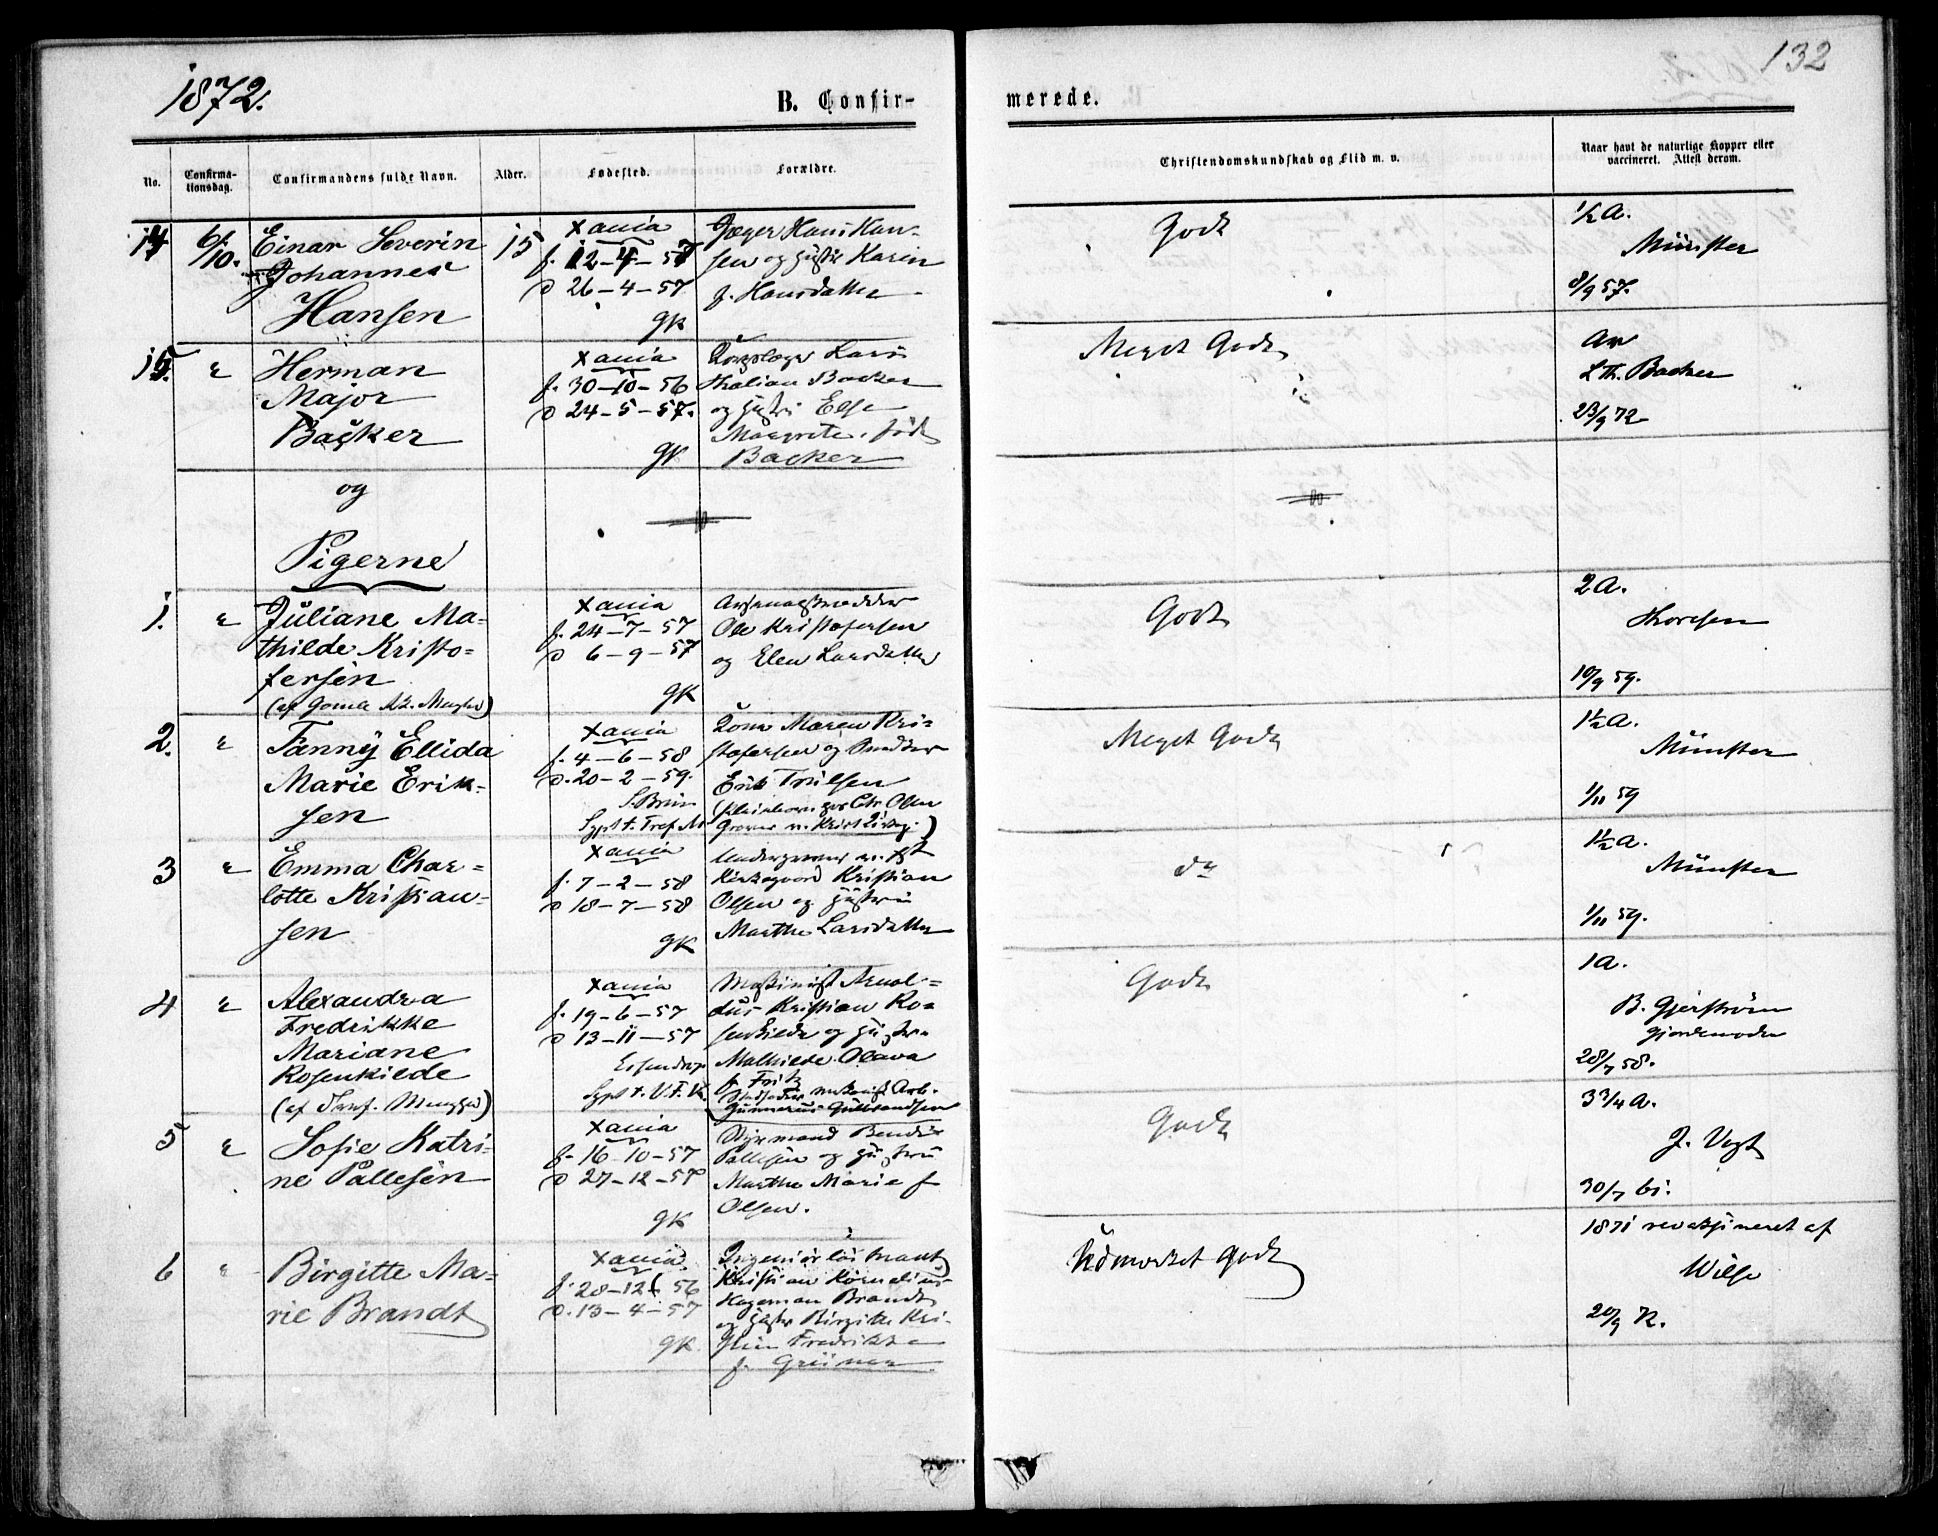 1872.
132
B. Confir-
merede.
No.
Confirma-
tionsdag.
Confirmandens fulde Navn.
Alder.
Fødested.
Forældre.
Christendomskundskab og Flid m. v.
Naar havt de naturlige Kopper eller
vaccineret. Attest derom.
14 6/10. Einar Severin
Johannes
Hansen
15
Xania
f. 12-4-57
d 26-4-57
gk
Jæger Hans Han-
sen og Hustr Karin
f. Hansdatter
Godt
1/2 A.
Münster
8/9 57.
15. "
Herman
Major
Backer
Xania
f. 30-10-56
d 24-5-57.
gk
Korpslæge Lars
Thalian Backer
og Hustr Else
Margrete, født
Backer
Meget Godt
Av
L Th. Backer
23/9 72
og
Pigerne
1. "
Juliane Ma-
thilde Kristo-
fersen
(af Gamle Ak. Menghed)
Xania
f. 24-7-57
d 6-9-57
gk
Ole Kristofersen
og Elen Larsdatter
Godt
2 A.
Thoresen
19/9 59.
2. "
Fanny Ellida
Marie Erik-
sen
Xania
f. 4-6-58
d. 20-2-59.
S. Brun
Sypst t. Tref. M.
Kone Maren Kri-
stofersen og Smedsv
Erik Trulsen
Meget Godt
1 1/2 A.
Münster
1/11 59
3 "
Emma Char-
lotte Kristian-
sen
Xania
f. 7-2-58
d 18-7-58
gk
Kirkegaard Kristian
Olsen og Hustru
Marthe Larsdatter
do
1 1/2 A.
Münster
1/11 59.
4 "
Alexandra
Fredrikke
Mariane
Rosenkilde
Xania
f. 19-6-57
d 13-11-57
Essendrop
Sypst t. V. F. K.
Maskinist Arnol-
dus Kristian Ro-
senkilde og Hustru
Mathilde Olava
f. Fritz
Gunnerius Gulbrandsen
Godt
1 A.
B. Gjerstrøm
Gjordemoder
28/7 58.
5 "
Sofie Katri-
ne Pallesen
Xania
f. 16-10-57
d 27-12-57
gk
Styrmand Bendix
Pallesen og Hustru
Marthe Marie f
Olsen.
Godt
3 3/4 A.
J. Vogt
30/7 61.
6 "
Birgitte Ma-
rie Brandt
Xania
f. 28-12-56
d. 13-4-57
gk
Ingeniørløitnant
Kristian Kornelius
Hageman Brandt
og Hustr Birgitte Kri-
stine Fredrikke
f. Grüner
Udmærket Godt
1871 revaksineret af
Wilse
20/9 72.